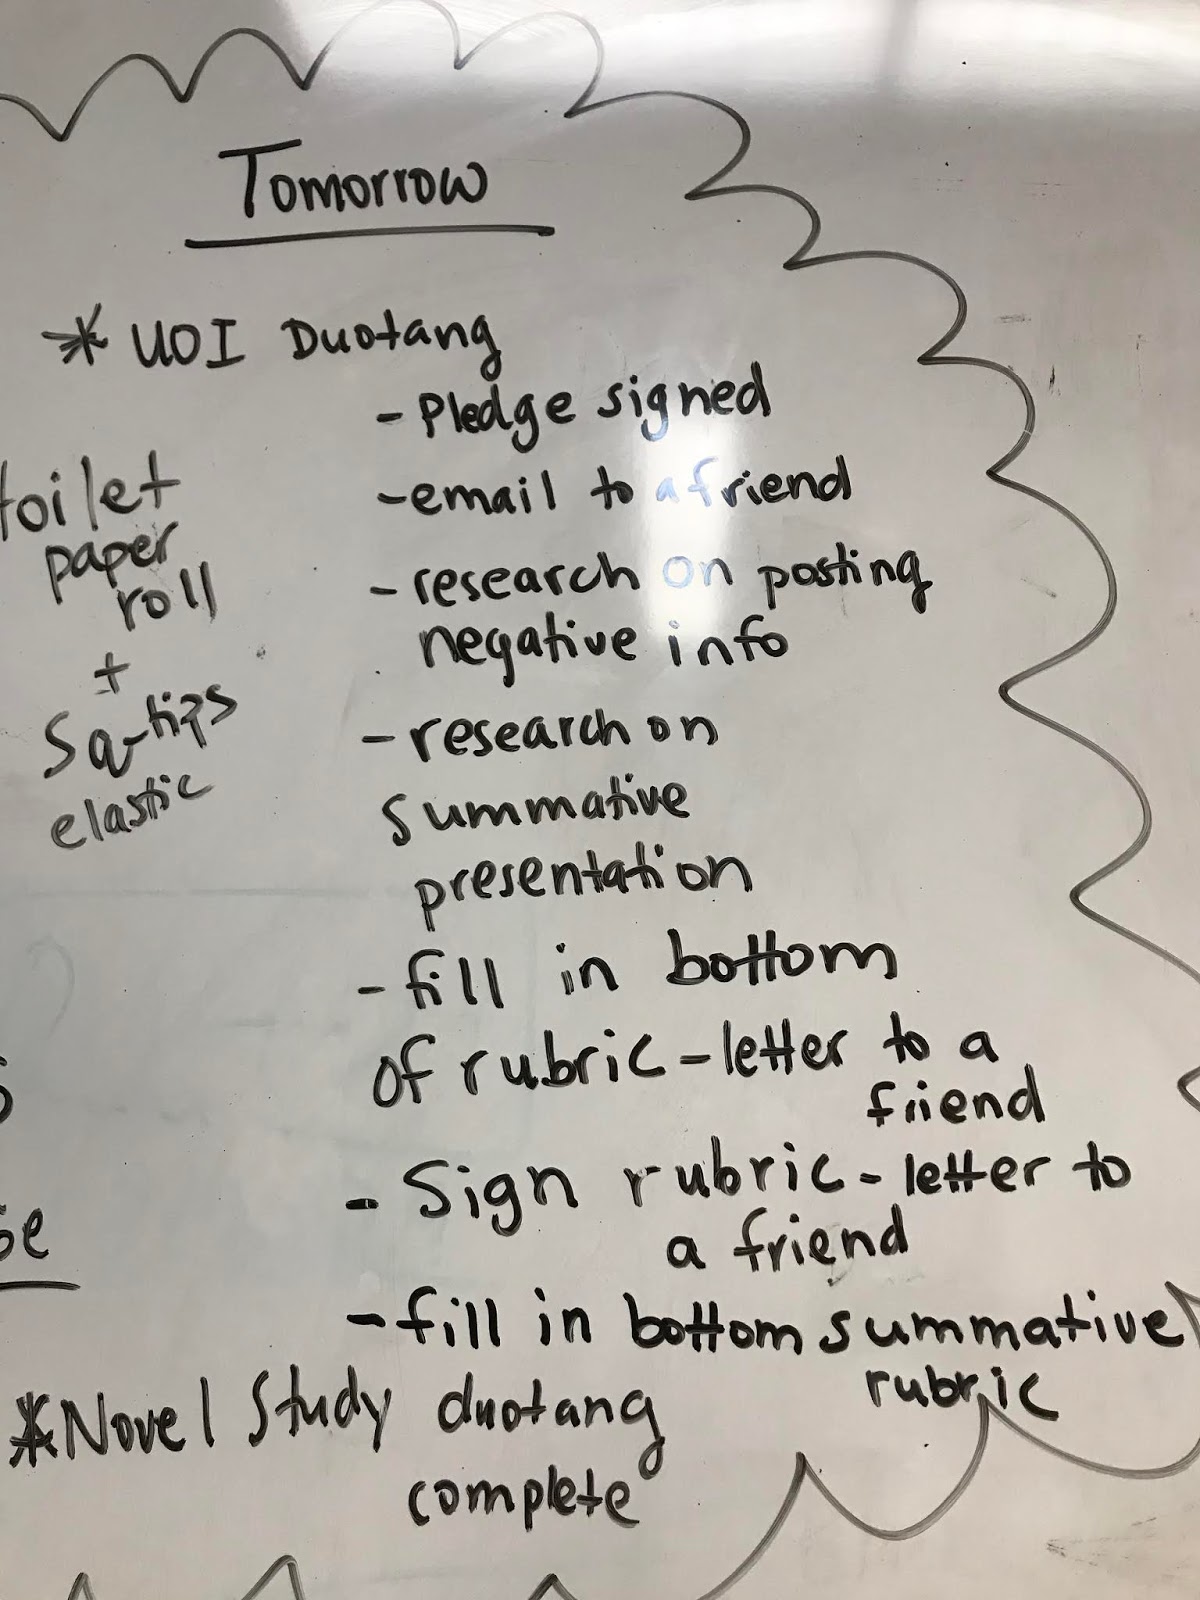 Tomorrow
* UOI Duotang
- Pledge signed
- email to a friend
- research on posting
negative info
- research on
summative
presentation
- fill in bottom
of rubric - letter to a
friend
- Sign rubric - letter to
a friend
- fill in bottom summative
rubric
* Novel Study duotang
complete
toilet
paper
roll
+
5 q-tips
elastic